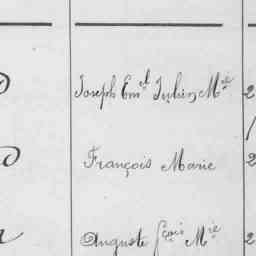 Joseph Em.el Julien M.ie 2
François Marie 2
Auguste f.çois M.ie 2